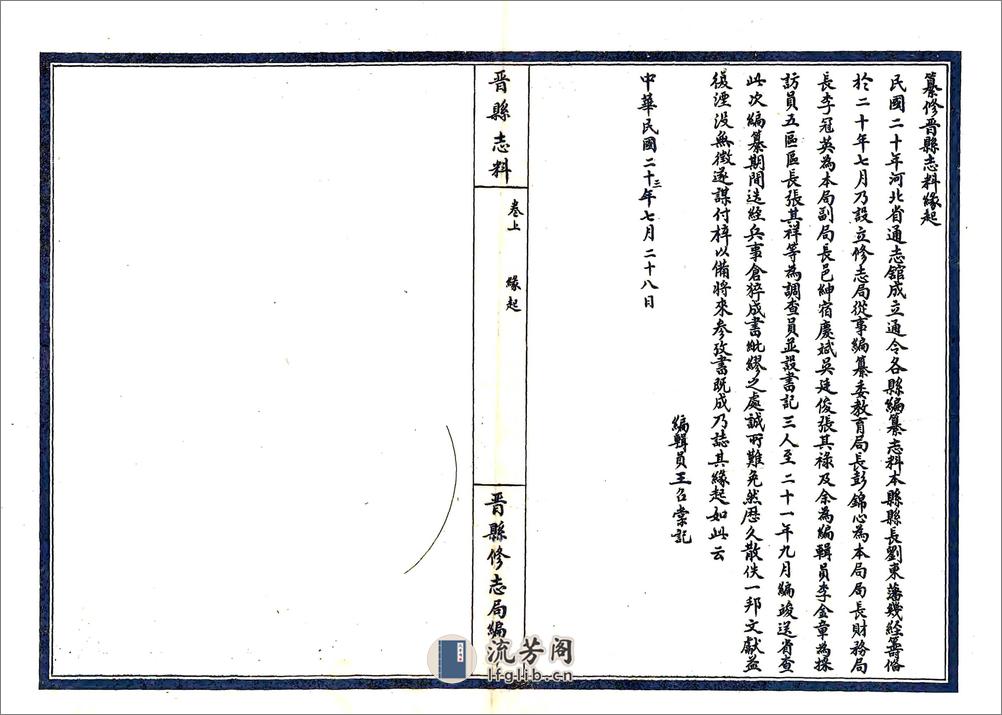 纂修晋縣志料緣起
民國二十年河北省通志舘成立通令各縣編纂志料本縣縣長劉東藩幾經籌備
於二十年七月乃設立修志局從事編纂委教育局長彭錦心為本局局長財務局
長李冠英為本局副局長邑紳宿慶斌吳廷俊張其祿及余為編輯員李金章為採
訪員五區區長張其祥等為調查員並設書記三人至二十一年九月編竣送省查
此次編纂期間迭經兵事倉猝成書紕繆之處誠所難免然歷久散佚一邦文獻益
復湮没無徵遂謀付梓以備將來參攷書既成乃誌其緣起如此云
編輯員王召棠記
中華民國二十三年七月二十八日
晋縣志料
卷上 緣起
晋縣修志局編
流芳阁
lfglib.cn